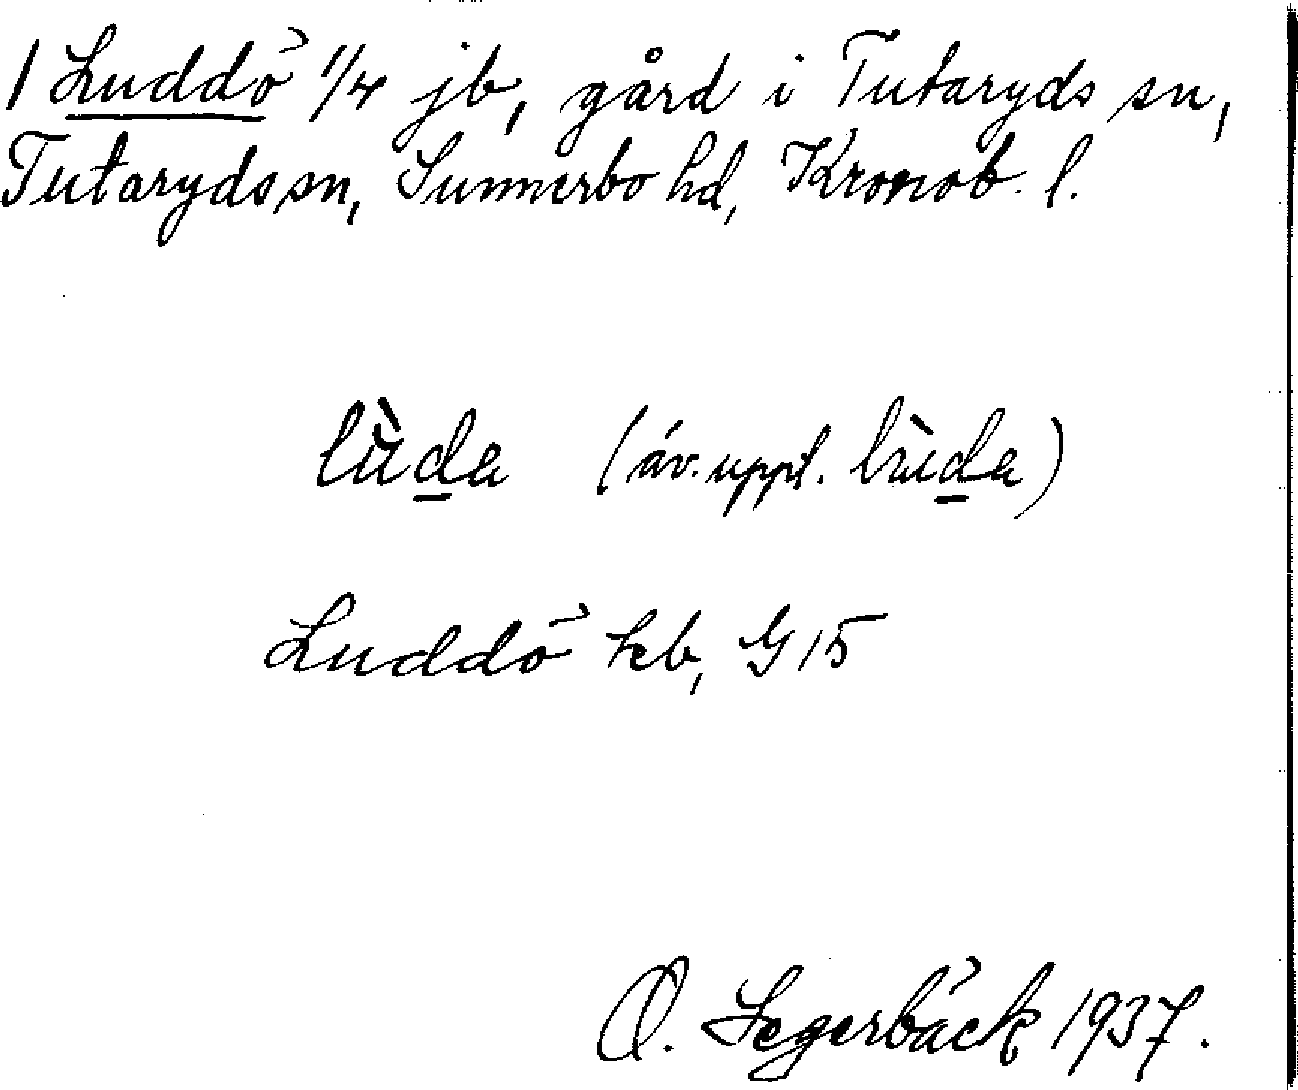 1 Luddö 1/4 jb, gård i Tutaryds sn,
Tutaryds sn, Sunnerbo hd, Kronob. l.
lùd̲a (äv. uppl. lùd̲a)
Luddö kb, G 15
O. Segerbäck 1937.